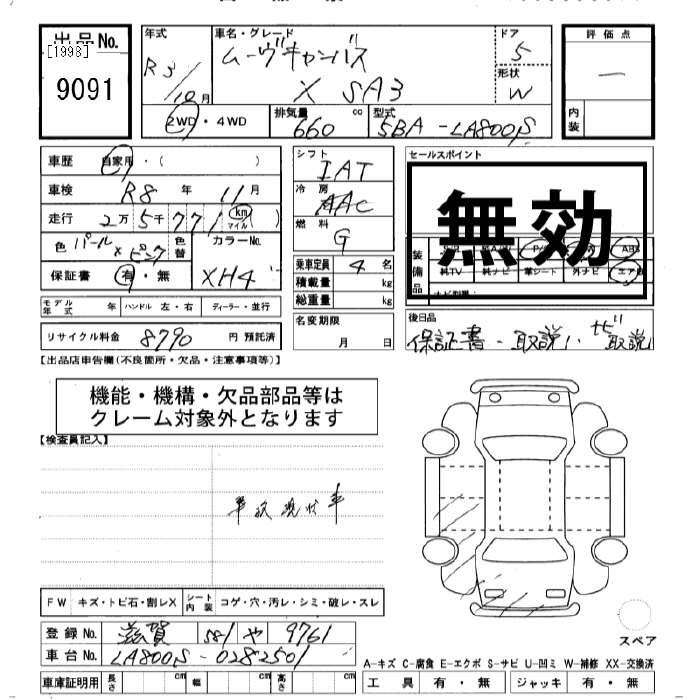 出品No.
[1998]
9091
年式
R3/10月
車名・グレード
ムーヴキャンバス
X SA3
ドア
5
形状
W
評価点
一
内装
2WD・4WD
排気量
660 cc
型式
5BA-LA800S
車歴 自家用・( )
車検 R8年 11月
走行 2万5千771 km マイル
色 パール×ピンク
色替
カラーNo.
XH4
保証書 有・無
モデル年式 年 ハンドル 左・右 ディーラー・並行
リサイクル料金 8790 円 預託済
シフト
IAT
冷房
AAC
燃料
G
乗車定員 4 名
積載量 kg
総重量 kg
名変期限
月 日
セールスポイント
無効
装備品
AB
純TV 純ナビ 革シート 外ナビ エアB
後日品
保証書・取説、ナビ取説
【出品店申告欄(不良箇所・欠品・注意事項等)】
機能・機構・欠品部品等は
クレーム対象外となります
【検査員記入】
車両現状車
FW キズ・トビ石・割レX シート内装 コゲ・穴・汚レ・シミ・破レ・スレ
登録No. 滋賀 581 や 9761
車台No. LA800S-0282501
車庫証明用 長さ cm 幅 cm 高さ cm
スペア
A-キズ C-腐食 E-エクボ S-サビ U-凹ミ W-補修 XX-交換済
工具 有・無 ジャッキ 有・無